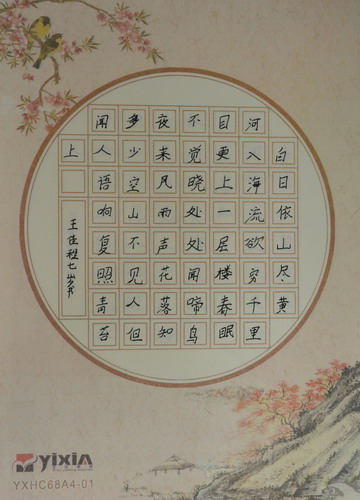 白日依山尽黄
河入海流欲穷千里
目更上一层楼春眠
不觉晓处处闻啼鸟
夜来风雨声花落知
多少空山不见人但
闻人语响复照青苔
上
王佳程七岁
YiXiN
YXHC68A4-01